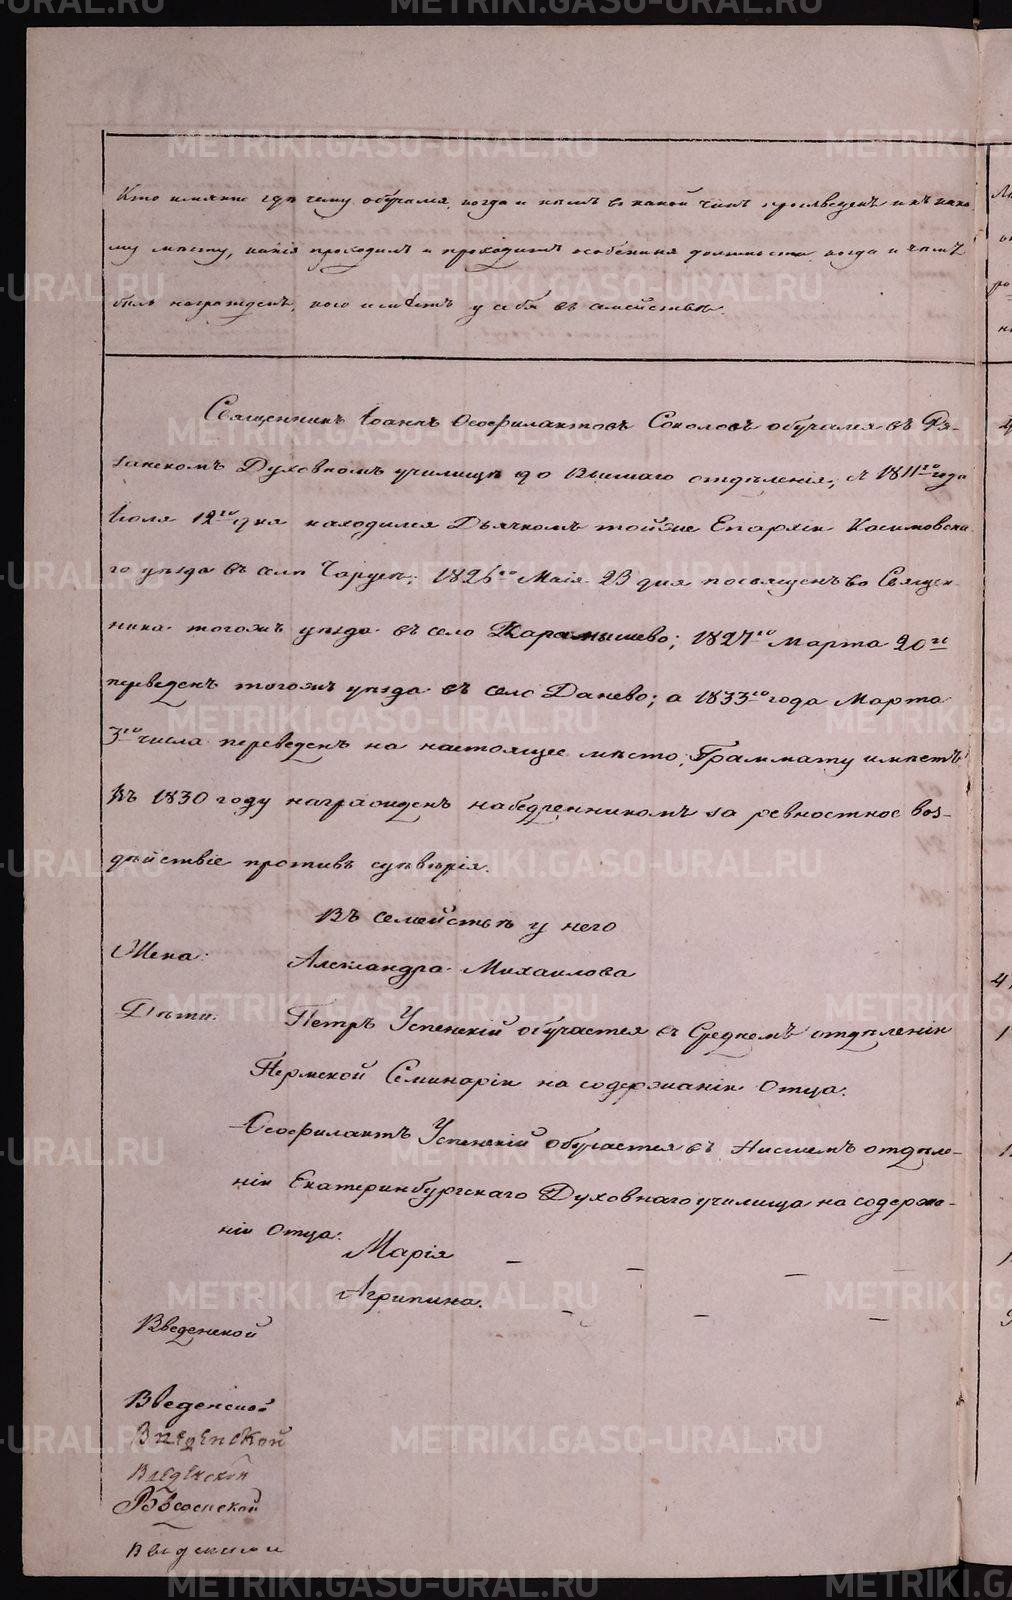 Кто имянно гдѣ чему обучался, когда и кѣмъ въ какой чинъ произведенъ и къ како
му мѣсту, какія проходилъ и проходитъ особенныя должности, когда и чѣмъ
былъ награжденъ, кого имѣетъ у себя въ семействѣ.
Священникъ Іоаннъ Ѳеофилактовъ Соколовъ обучался въ Ря-
занскомъ Духовномъ училищѣ до Высшаго отдѣленія; съ 1811го года
Іюля 12го дня находился Дьячкомъ тойже Епархіи Касимовска
го уѣзда въ селѣ 1826го Маія 23 дня посвященъ во Священ-
ника тогожъ уѣзда въ село Карамышево; 1827го Марта 20го
переведенъ тогожъ уѣзда въ село Данево; а 1833го года Марта
3го числа переведенъ на настоящее мѣсто, Граммату имѣетъ
Въ 1830 году награжденъ набедренникомъ за ревностное воз-
дѣйствіе противъ суевѣрія.
Въ семействѣ у него
Жена: Александра Михаилова
Дѣти: Петръ Успенскій обучается въ Среднемъ отдѣленіи
Пермской Семинаріи на содержаніи Отца.
Ѳеофилактъ Успенскій обучается въ Нисшемъ отдѣле-
ніи Екатеринбургскаго Духовнаго училища на содержа-
ніи Отца.
Марія - - -
Агрипина. - - -
Введенской
Введенской
Введенской
Введенской
Введенской
Введенской
METRIKI.GASO-URAL.RU